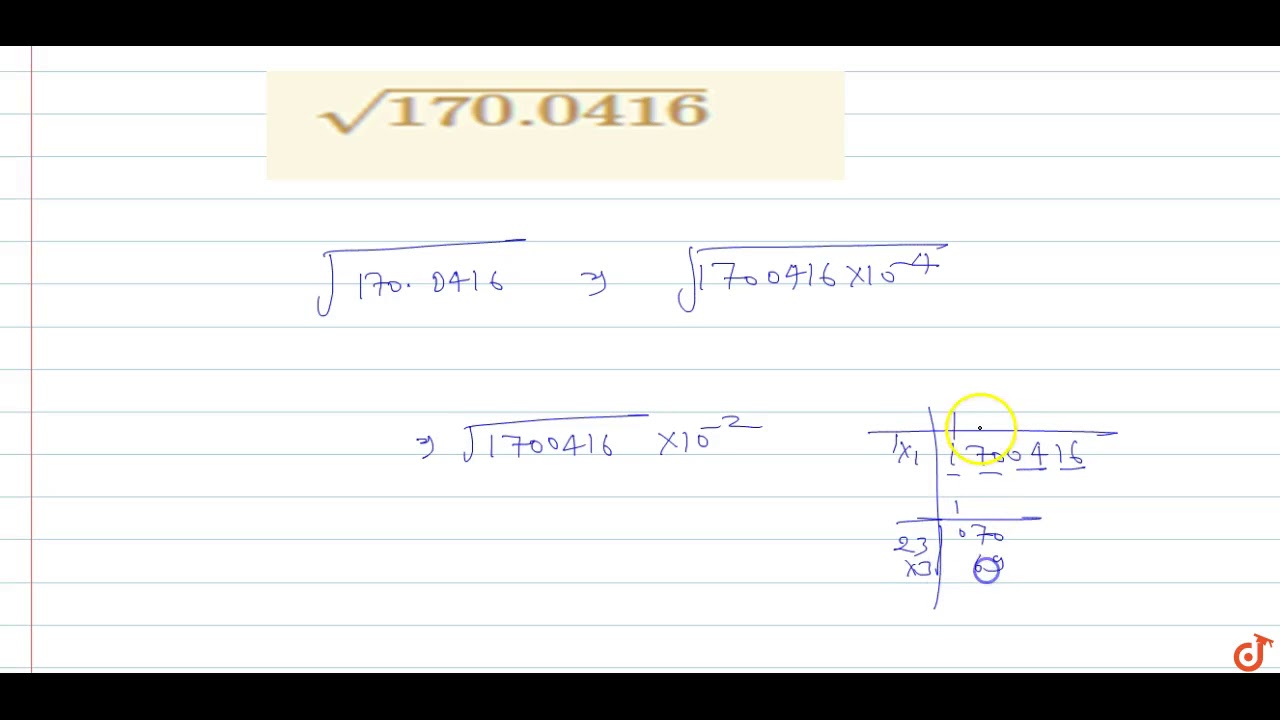 √170.0416
√170.0416 ⇒ √1700416×10⁻⁴
⇒ √1700416 ×10⁻²
1
1×1 1700416
1
23 070
×3 69